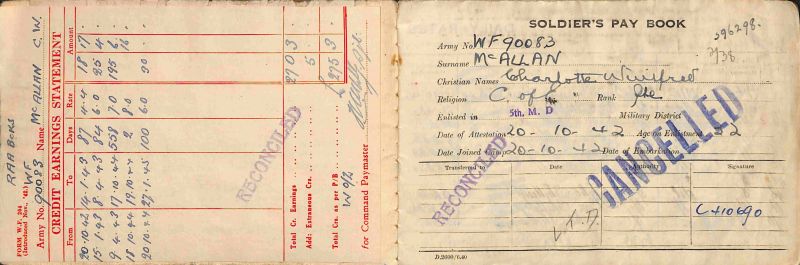 RAA BCKS
FORM W.F. 204
(Introduced Nov., '42.)
WF
Army No. 90083 Name McALLAN C.W.
CREDIT EARNINGS STATEMENT
From To Days Rate Amount
20.10.42 14.1.43 87 4.4 18 17 .
15.1.43 8.4.43 84 6.0 25 4 .
9.4.43 17.10.44 558 7.0 195 6 .
18.10.44 19.10.44 2 8.0 16 .
20.10.44 27.1.45 100 6.0 30 . .
Total Cr. Earnings 270 3
Add: Extraneous Crs. 5
Total Crs. as per P/B £ 275 3
W 9/2
for Command Paymaster
RECONCILED
SOLDIER'S PAY BOOK
396298.
Army No. WF90083
Surname McALLAN
Christian Names Charlotte Winifred
Religion C. of E. Rank Pte
Enlisted in 5th. M. D Military District
Date of Attestation 20-10-42 Age on Enlistment 32
Date Joined Unit 20-10-42 Date of Embarkation
Transferred to Date Authority Signature
RECONCILED
CANCELLED
C410690
D.2600/6.40